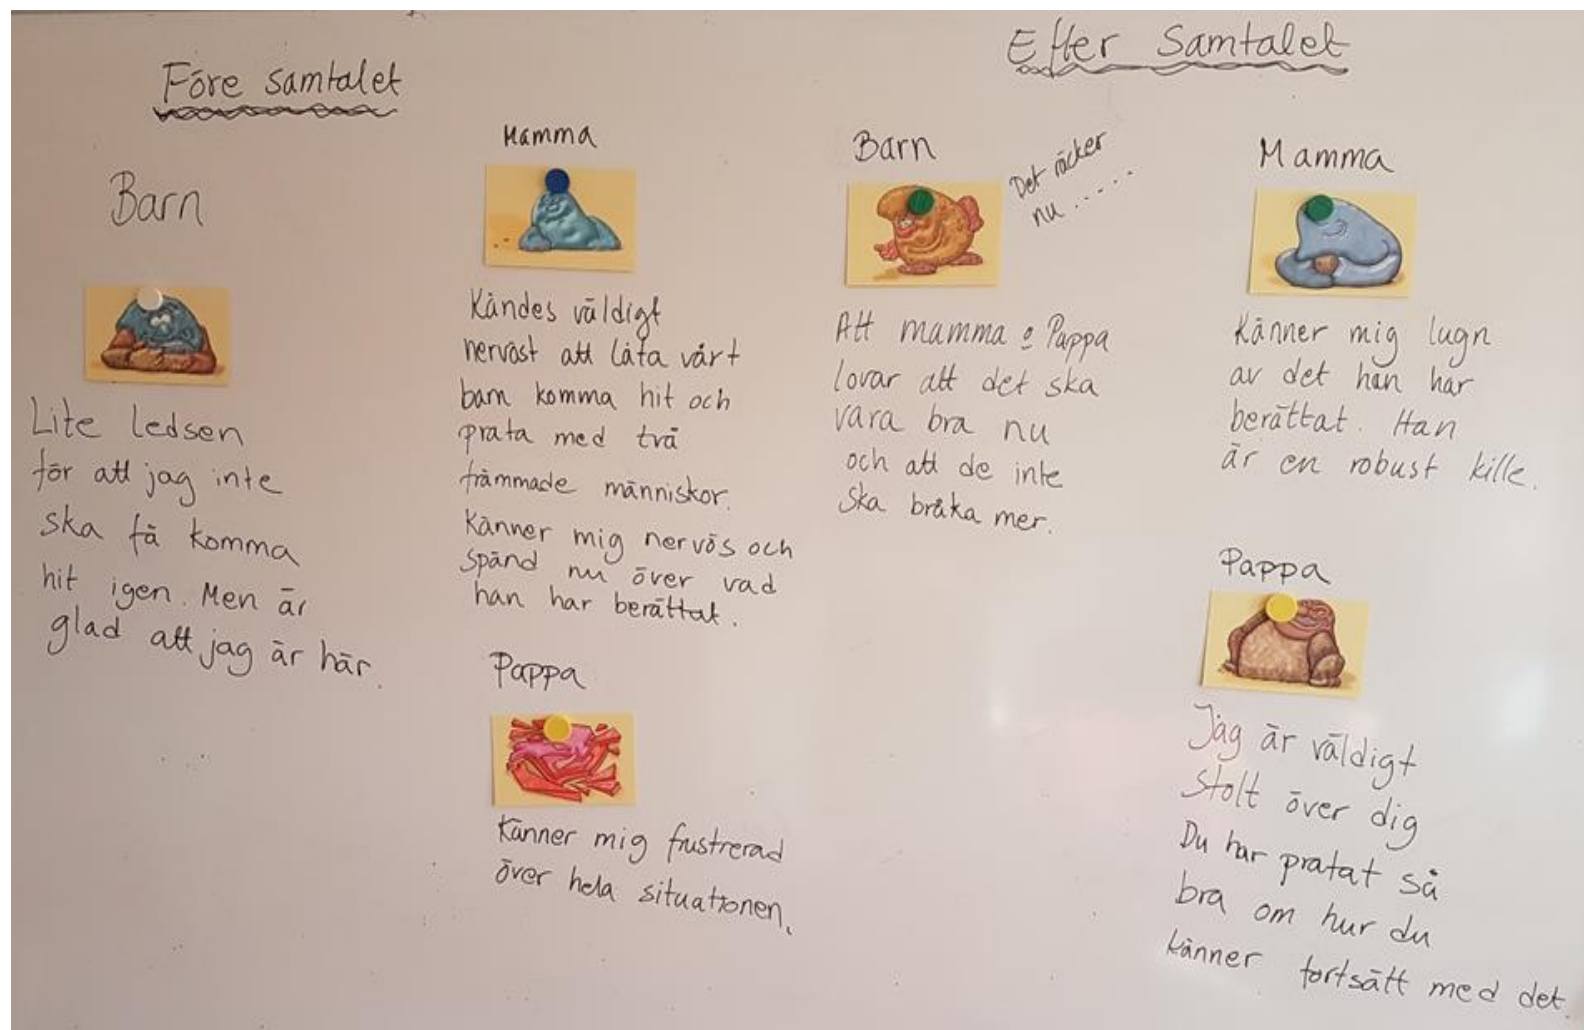 Före samtalet
Barn
Lite ledsen
för att jag inte
ska få komma
hit igen. Men är
glad att jag är här.
Mamma
Kändes väldigt
nervöst att låta vårt
barn komma hit och
prata med två
främmade människor.
Känner mig nervös och
spänd nu över vad
han har berättat.
Pappa
Känner mig frustrerad
över hela situationen.
Efter Samtalet
Barn
Det räcker
nu .....
Att mamma o Pappa
lovar att det ska
vara bra nu
och att de inte
ska bråka mer.
Mamma
Känner mig lugn
av det han har
berättat. Han
är en robust kille.
Pappa
Jag är väldigt
stolt över dig
Du har pratat så
bra om hur du
känner fortsätt med det.